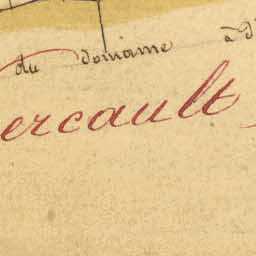 du domaine à d'
ercault